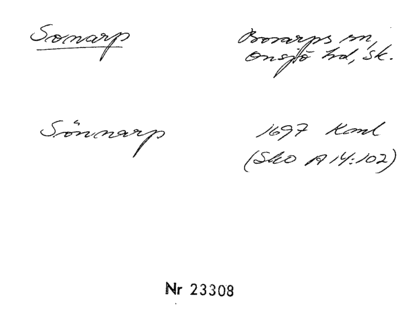 Sonarp Bosarps sn,
Onsjö hd, Sk.
Sönnarp 1697 Konl
(SkO A 14:102)
Nr 23308